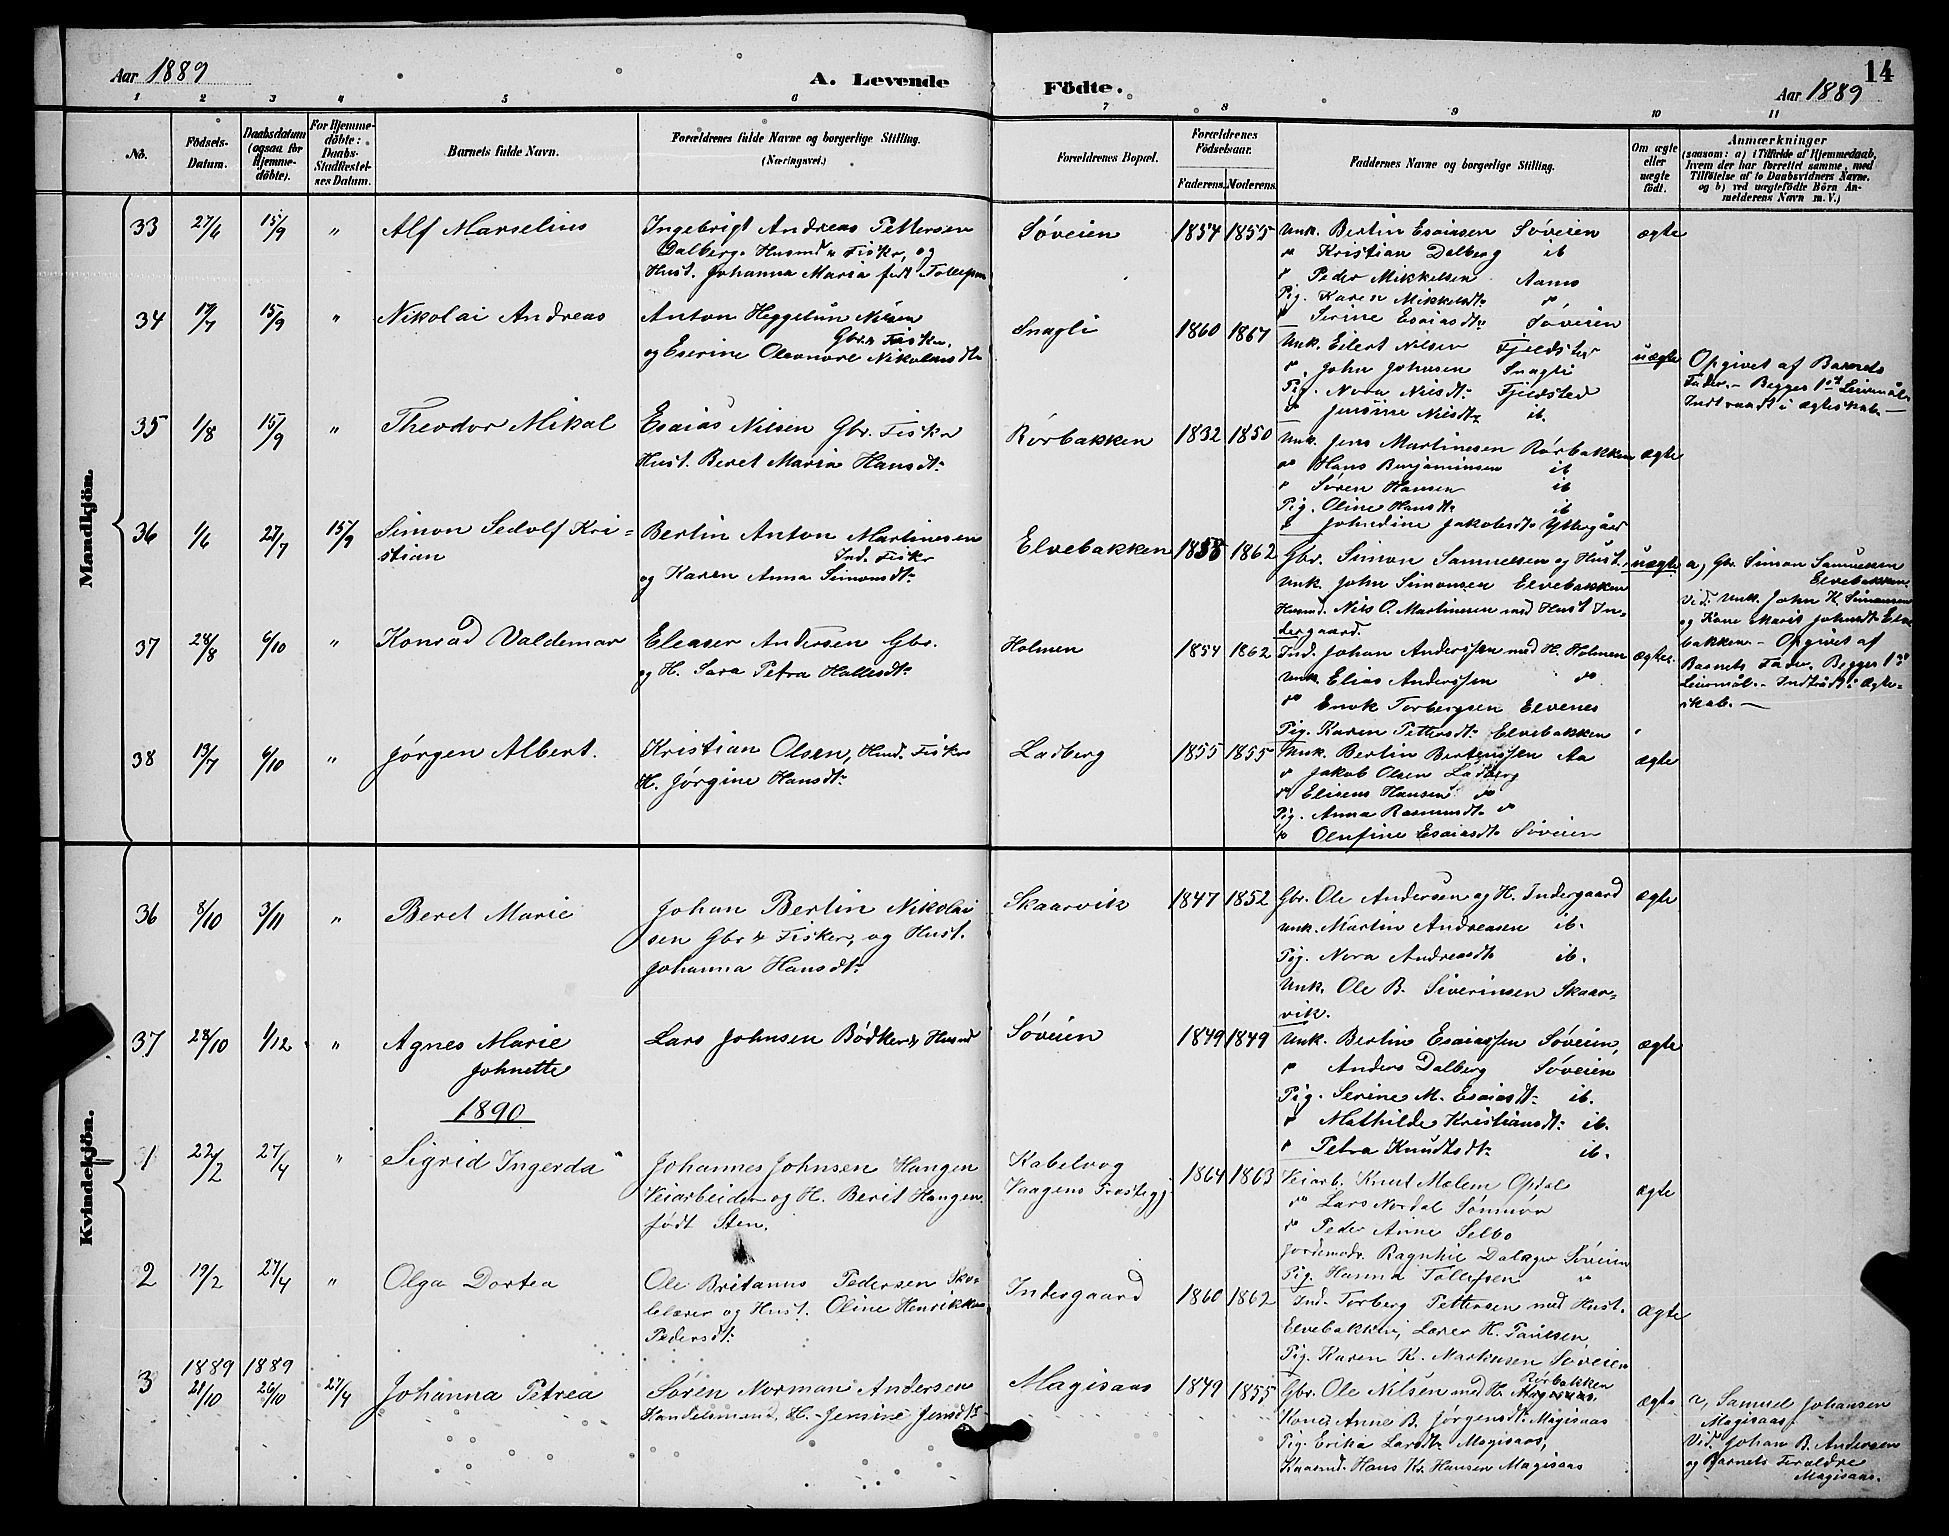 Aar 1889
A. Levende Födte.
14
Aar 1889
1 2 3 4 5 6 7 8 9 10 11
No.
Födsels-Datum.
Daabsdatum (ogsaa for Hjemme-döbte).
For Hjemme-döbte: Daabs-Stadfæstel-ses Datum.
Barnets fulde Navn.
Forældrenes fulde Navne og borgerlige Stilling.
(Næringsvei.)
Forældrenes Bopæl.
Forældrenes Födselsaar.
Faderens. Moderens.
Faddernes Navne og borgerlige Stilling.
Om ægte eller uægte födt.
Anmærkninger
(saasom: a) i Tilfælde af Hjemmedaab, hvem der har forrettet samme, med Tilföielse af to Daabsvidners Navne. og b) ved uægtefödte Börn An-melderens Navn m. V.)
Mandkjön.
33 27/6 15/9 " Alf Marselius
Ingebrigt Andreas Pettersen
Dalberg. Husmd & Fisker, og
Hust. Johanna Maria født Tollefsen
Søveien 1854 1855
Unk. Bertin Esaiasen Søveien
" Kristian Dalberg ib
" Peder Mikkelsen Aanes
Pig. Karen Mikkelsdt. "
" Serine Esaiasdt. Søveien
ægte
34 19/7 15/9 " Nikolai Andreas
Anton Heggelun Nilsen
Gbr. & Fisker.
og Eserine Oleonore Nikolaisdt.
Snagli 1860 1867
Unk. Eilert Nilsen Fjeldsted
" John Johnsen Snagli
Pig. Nora Nilsdt. Fjeldsted
" Jensine Nilsdt. ib
uægte
Opgivet af Barnets
Fader. - Begges 1ste Leiermål.
Indtraadt i Ægteskab. -
35 1/8 15/9 " Theodor Mikal
Esaias Nilsen Gbr. Fisker
Hust. Beret Maria Hansdt.
Rörbakken 1832 1850
Unk. Jens Martinesen Rörbakken
" Hans Benjaminsen ib
" Søren Hansen ib
Pig. Oline Hansdt. ib
" Johndine Jakobsdt. Yttergård
ægte
36 1/6 27/7 15/9 Simon Sedolf Kri-
stian
Bertin Anton Martinesen
Ind. Fisker
og Karen Anna Simonsdt.
Elvebakken 1858 1862
Gbr. Simon Samuelsen og Hust.
Unk. John Simonsen Elvebakken
Husmd. Nils O. Martinesen med Hust. In-
dergaard.
uægte
a, Gbr. Simon Samuelsen
Elvebakken.
Vid. Unk. John H. Simonsen
og Kone Marit Johnsdt. Elve
bakken - Opgivet af
Barnets Fader. Begges 1ste
Leiermål. - Indtrådt i Ægte-
skab. -
37 28/8 6/10 " Konrad Valdemar
Eleaser Andersen Gbr.
og H. Sara Petra Hallesdt.
Holmen 1854 1862
Ind. Johan Anderssen med H. Holmen
Unk. Elias Anderssen "
" Enok Torbergsen Elvenes
Pig. Karen Pettersdt. Elvebakken
ægte.
38 19/7 6/10 " Jørgen Albert.
Kristian Olsen, Husmd. Fisker
H. Jørgine Hansdt.
Ladberg 1855 1855
Unk. Bertin Berthssen Aa
" Jakob Olsen Ladberg
" Elisens Hansen "
Pig. Anna Rasmusdt. "
" Olufine Esaiasdt. Søveien
ægte
Kvindekjön.
36 8/10 3/11 " Beret Marie
Johan Bertin Nikolai
sen Gbr & Fisker, og Hust.
Johanna Hansdt.
Skaarvik 1847 1852
Gbr. Ole Andersen og H. Indergaard
Unk. Martin Andreasen ib.
Pig. Nora Andreasdt. ib.
Unk. Ole B. Siverinsen Skaar-
vik.
ægte
37 28/10 1/12 " Agnes Marie
Johnette
Lars Johnsen Bödker & Husmd
Søveien 1849 1849
Unk. Bertin Esaiassen Søveien,
" Anders Dalberg Søveien
Pig. Serine M. Esaiasdt. ib.
" Mathilde Kristiansdt. ib.
" Petra Knudtsdt. ib.
ægte
1890
1 22/2 27/4 " Sigrid Ingerda
Johannes Johnsen Haugen
Veiarbeider og H. Berit Haugen
født Sten.
Kabelvog
Vaagens Prestegj. 1864 1863
Veiarb. Knut Mælem Opdal
" Lars Nordal Sönmør
" Peder Aune Selbo
Jordemodr. Ragnhil Dalager Søveien
Pig. Hanna Tollefsen "
ægte
2 19/2 27/4 " Olga Dortea
Ole Britanus Pedersen Sko-
lelærer og Hust. Oline Henrikka
Pedersdt.
Indergaard 1860 1862
Ind. Torberg Pettersen med Hust.
Elvebakken, Lærer H. Paulsen
Pig. Karen K. Martinsen Søveien
Ægte
3 1889 21/10 1889 26/10 27/4 Johanna Petrea
Søren Norman Andersen
Handelsmand, H. Jensine Jensdt.
Magisaas 1849 1855
Gbr. Ole Nilsen med H. Rörbakken
Kone Anne B. Jørgensdt. Magisaas
Pig. Erika Larsdt. Magisaas,
Hans Kr. Hansen Magisaas
ægte
a, Samuel Johansen
Magisaas.
Vid. Johan B. Andersen
og Barnets Forældre
Magisaas.